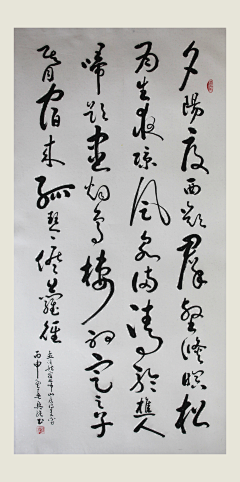 夕陽度西嶺群壑倏已暝松
月生夜涼風泉滿清聽樵人
歸欲盡烟鳥棲初定之子
期宿來孤琴候蘿徑
丙申